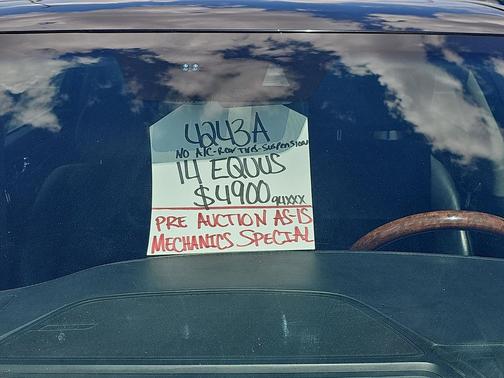 4243A
NO A/C-REAR TIRES-SUSPENSION
14 EQUUS
$4900 94XXX
PRE AUCTION AS-IS
MECHANICS SPECIAL